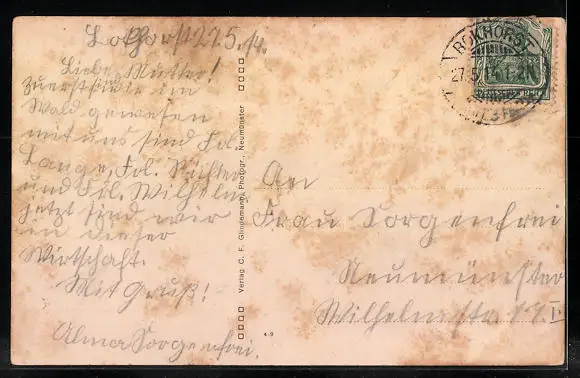 Lokhorst 27.5.14.
Liebe Mutter!
Zuerst wir im
Wald gewesen
mit uns sind Frl.
Lange, Frl. Richter
und Frl. Wilhelm
jetzt sind wir
in dieser
Wirtschaft.
Mit Gruß!
Alma Sorgenfrei.
Verlag C. F. Glindemann, Photogr., Neumünster
4-9
BOKHORST
27.5.14.
An
Frau Sorgenfrei
Neumünster
Wilhelmstr. 17 I